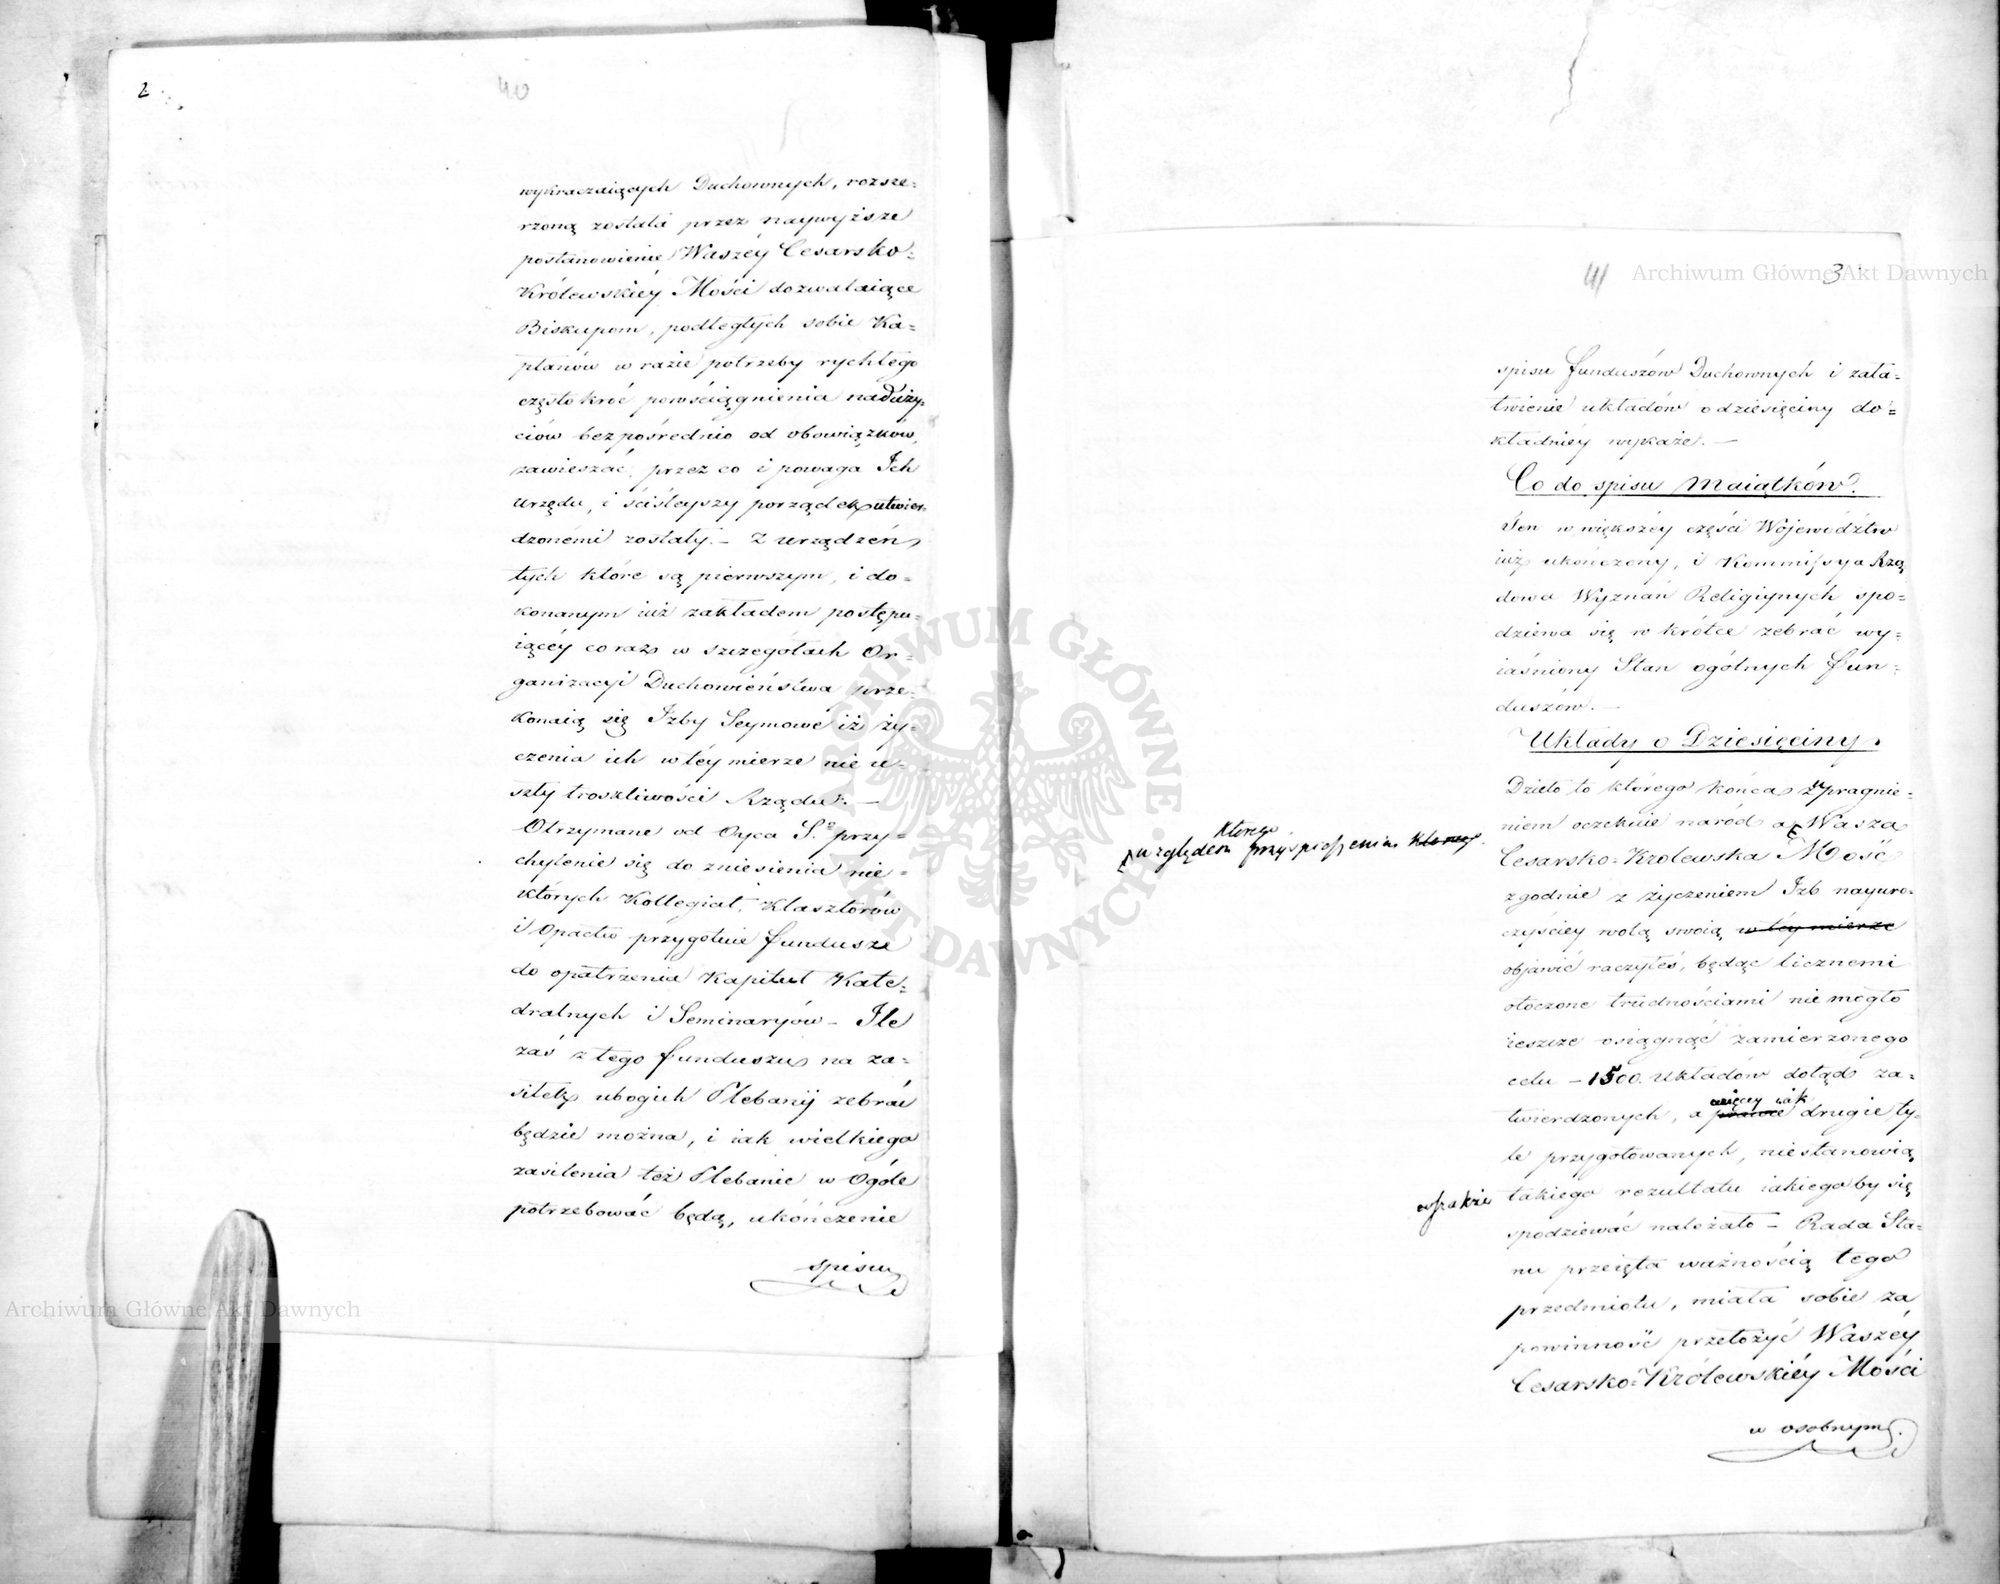 2
40
wykraczaiących Duchownych, rozsze-
rzoną została przez naywyższe
postanowienie Waszéy Cesarsko-
Królewskiéy Mości dozwalaiące
Biskupom, podległych sobie Ka-
płanów w razie potrzeby rychłego
częstokróć powściągnienia naduży-
ciów bezpośrednio od obowiązków
zawieszać, przez co i powaga Ich
urzędu, i ściśleyszy porządek utwier-
dzonémi zostały. – Z urządzeń
tych które są pierwszym, i do-
konanym iuż zakładem postępu-
iącéy coraz w szczegółach Or-
ganizacyi Duchowieństwa prze-
konaią się Izby Seymowe iż ży-
czenia ich w téy mierze nie u-
szły troskliwości Rządu. –
Otrzymane od Oyca S.º przy-
chylenie się do zniesienia nie-
których Kollegiat, Klasztorów
i Opactw przygotuie fundusze
do opatrzenia Kapituł Kate-
dralnych i Seminaryów – Ile
zaś z tego funduszu na za-
siłek ubogich Plebanij zebrać
będzie można, i iak wielkiego
zasilenia też Plebanie w Ogóle
potrzebować będą, ukończenie
spisu
41
3
spisu funduszów Duchownych i zała-
twienie układów o dziesięciny do-
kładniéy wykaże. –
Co do spisu Maiątków.
Ten w większéy części Województw
iuż ukończony, i Kommissya Rzą
dowa Wyznań Religiynych spo-
dziewa się w krótce zebrać wy-
iaśniony Stan ogólnych fun-
duszów. –
Układy o Dziesięciny.
Dzieło to którego końca z upragnie-
niem oczekuie naród a Wasza
którego
względem przyśpieszenia którego
Cesarsko-Krolewska Mość
zgodnie z życzeniem Izb nayuro-
czyściey wolą swoią w téy mierze
objawić raczyłeś, będąc licznemi
otoczone trudnościami nie mogło
ieszcze osiągnąć zamierzonego
celu – 1500. Układów dotąd za-
więcey iak
twierdzonych, a prawie drugie ty-
le przygotowanych, niestanowią
wszakże takiego rezultatu iakiegoby się
spodziewać należało – Rada Sta-
nu przeięta ważnością tego
przedmiotu, miała sobie za
powinność przełożyć Waszéy
Cesarsko-Królewskiéy Mości
w osobnym
Archiwum Główne Akt Dawnych
Archiwum Główne Akt Dawnych
ARCHIWUM GŁÓWNE AKT DAWNYCH